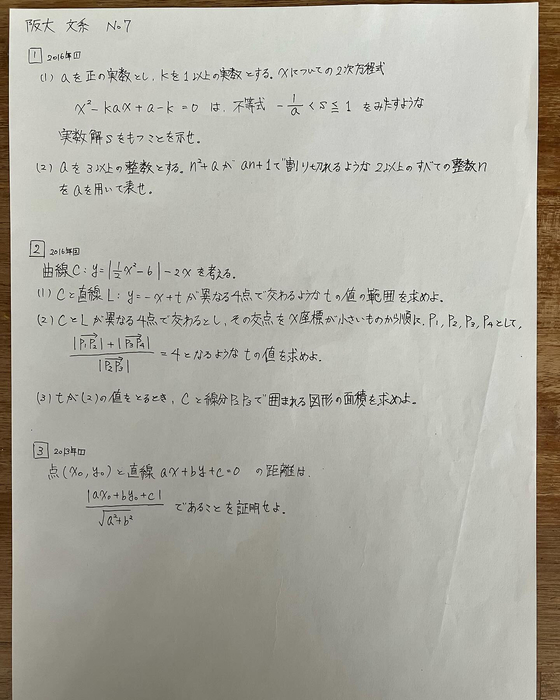 阪大 文系 No7
1 2016年①
(1) aを正の実数とし、kを1以上の実数とする。xについての2次方程式
x²-kax+a-k=0 は、不等式 -1/a<s≦1 をみたすような
実数解sをもつことを示せ。
(2) aを3以上の整数とする。n²+aが an+1で割り切れるような 2以上のすべての整数n
をaを用いて表せ。
2 2016年②
曲線C:y=|1/2x²-6|-2xを考える。
(1) Cと直線L:y=-x+tが異なる4点で交わるようなtの値の範囲を求めよ。
(2) CとLが異なる4点で交わるとし、その交点をx座標が小さいものから順に、P₁,P₂,P₃,P₄として、
(|P₁P₂|+|P₃P₄|)/|P₂P₃|=4となるようなtの値を求めよ。
(3) tが(2)の値をとるとき、Cと線分P₂P₃で囲まれる図形の面積を求めよ。
3 2013年①
点(x₀,y₀)と直線 ax+by+c=0 の距離は、
|ax₀+by₀+c|/√(a²+b²) であることを証明せよ。